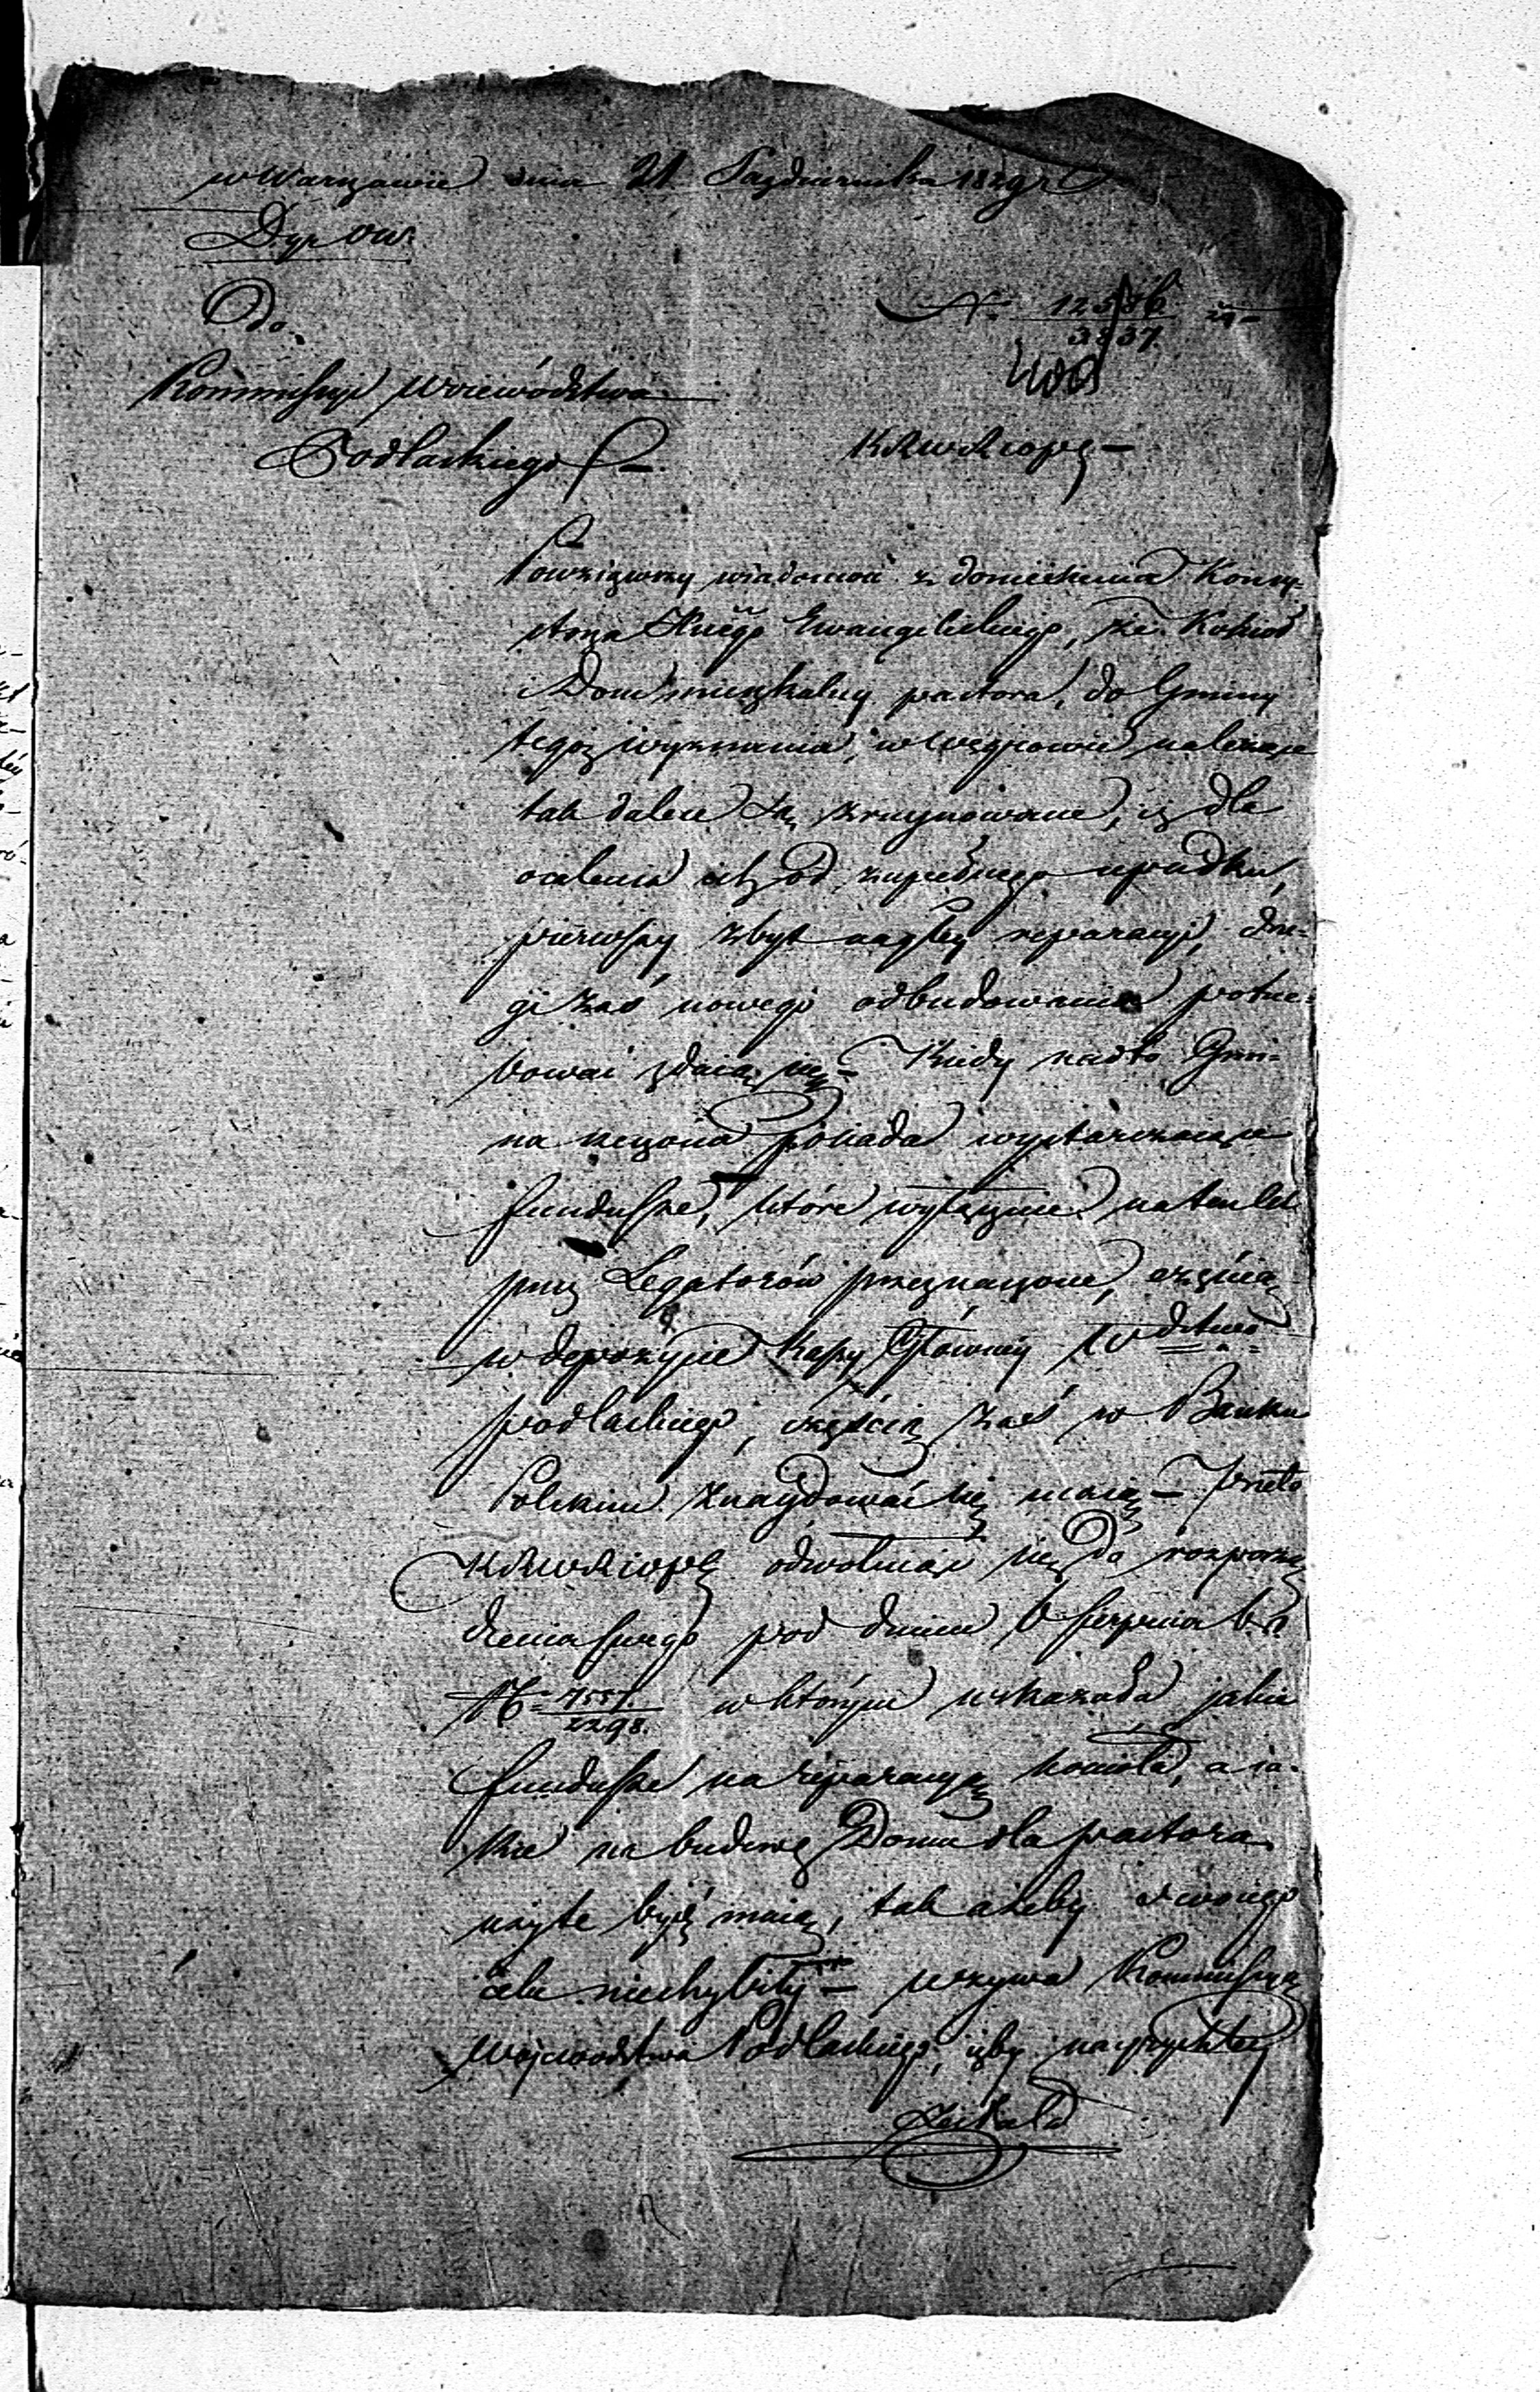 w Warszawie dnia 21 Października 1829 r.
Do
N° 12586
3837
Kommissyi Woiewództwa
Podlaskiego
KRWRiOPę
Powziąwszy wiadomość z doniesienia Konsy-
storza Ewangelickiego, że Kościoł
i Dom mieszkalny pastora, do Gminy
tegoż wyznania, w Węgrowie należące
tak dalece są zruynowane, iż dla
ocalenia ich od zupełnego upadku,
pierwszy zbyt nagłey reparacyi, dru-
gi zaś nowego odbudowania potrze-
bować zdaią się – Kiedy nadto Gmi-
na rzeczona posiada wystarczaiące
fundusze, które wyłącznie na ten cel
przez Legatorów przeznaczone, częścią
w depozycie Kassy Głowney Wdztwa
podlaskiego, częścią zaś w Banku
Polskim znaydować się maią – przeto
KRWRiOPę odwołuiąc się do rozporzą
dzenia swego pod dniem 6 sierpnia b.r.
N° 7557.
2298. w którym wskazała jakie
fundusze na reparacyą kościoła, a ia-
kie na budowę Domu dla pastora
użyte być maią, tak ażeby swoiego
celu niechybiły – wzywa Kommissyą
Woiewództwa Podlaskiego, iżby nayspieszniey